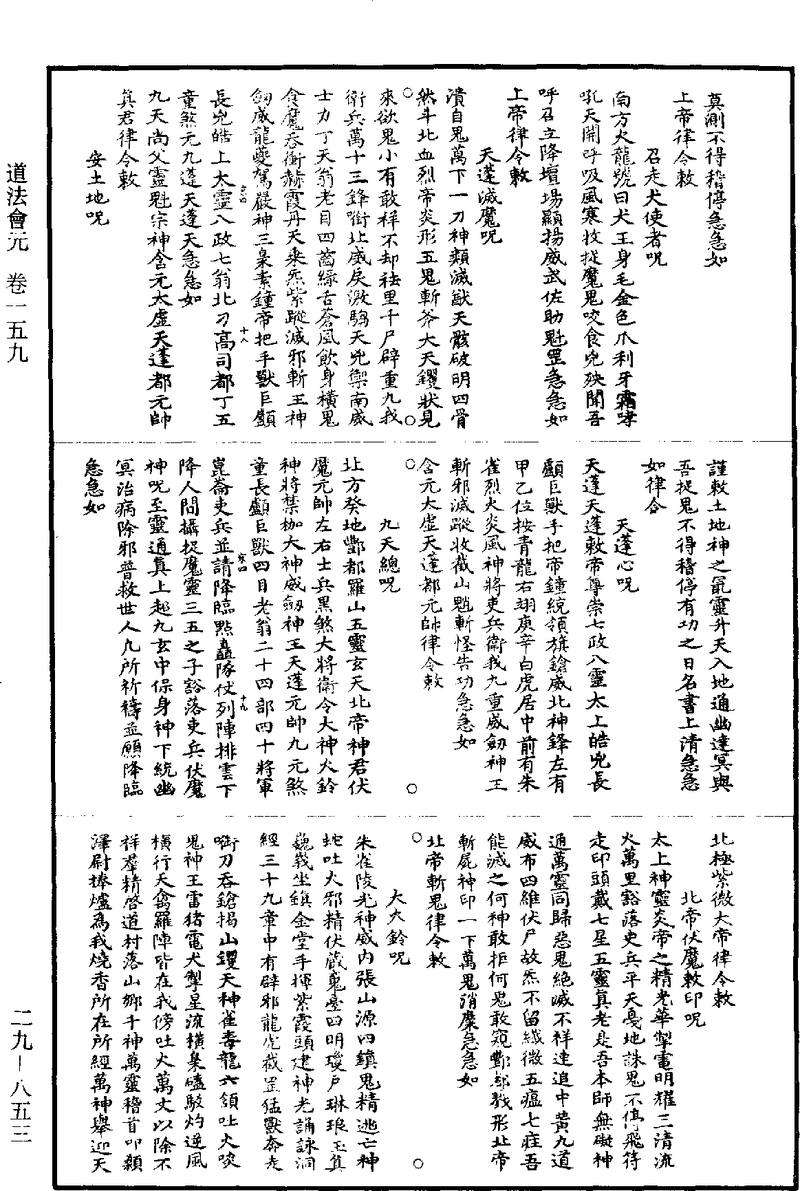 道法會元　卷一五九
二九－八五三
莫測不得稽停急急如
上帝律令敕
召走犬使者呪
南方火龍號曰犬王身毛金色爪利牙霜哮
吼天開呼吸風寒收捉魔鬼咬食兇殃聞吾
呼召立降壇場顯揚威武佐助魁罡急急如
上帝律令敕
天蓬滅魔呪
潰自鬼萬下一刀神類滅獸天骸破明四骨
然斗北血烈帝炎形五鬼斬斧大天钁狀見
來欲鬼小有敢祥不却祛里千尸辟重九我
衛兵萬十三鋒銜北威戾激騶天兇禦南威
士力丁天翁老目四齒綠舌蒼風飲身橫鬼
食魔吞衝赫霞丹天乘炁紫蹤滅邪斬王神
劒威龍夔駕嚴神三梟素鐘帝把手獸巨顱
長兇皓上太靈八政七翁北刁高司都丁五
童煞元九蓬天蓬天急急如
九天尚父靈魁宗神含元太虛天蓬都元帥
真君律令敕
安土地呪
謹敕土地神之最靈升天入地通幽達冥與
吾捉鬼不得稽停有功之日名書上清急急
如律令
天蓬心呪
天蓬天蓬敕帝尊崇七政八靈太上皓兇長
顱巨獸手把帝鐘統領旗鎗威北神鋒左有
甲乙位按青龍右翊庚辛白虎居中前有朱
雀烈火炎風神將吏兵衛我九重威劒神王
斬邪滅蹤收截山魈斬怪告功急急如
含元太虛天蓬都元帥律令敕
九天總呪
北方癸地酆都羅山五靈玄天北帝神君伏
魔元帥左右士兵黑煞大將衛令大神火鈴
神將禁枷大神威劒神王天蓬元帥九元煞
童長顱巨獸四目老翁二十四部四十將軍
崑崙吏兵並請降臨點矗隊仗列陣排雲下
降人間攝捉魔靈三五之子豁落吏兵伏魔
神呪至靈通真上起九玄中保身神下統幽
冥治病除邪普救世人凡所祈禱並願降臨
急急如
北極紫微大帝律令敕
北帝伏魔敕印呪
太上神靈炎帝之精光華掣電明耀三清流
火萬里豁落吏兵平天戛地誅鬼不停飛符
走印頭戴七星五靈真老是吾本師無礙神
通萬靈同歸惡鬼絕滅不祥速追中黃九道
威布四維伏尸故炁不留纖微五瘟七疰吾
能滅之何神敢拒何鬼敢窺酆都戮形北帝
斬屍神印一下萬鬼消糜急急如
北帝斬鬼律令敕
大火鈴呪
朱雀陵光神威內張山源四鎮鬼精逃亡神
蛇吐火邪精伏藏鬼臺四明瓊戶琳琅玉真
巍峩坐鎮金堂手揮紫霞頭建神光誦詠洞
經三十九章中有辟邪龍虎截罡猛獸奔走
銜刀吞鎗揭山钁天神雀毒龍六領吐火啖
鬼神王雷猪電犬掣星流橫梟磕駁灼逆風
橫行天禽羅陣皆在我傍吐火萬丈以除不
祥羣精啓道村落山鄉千神萬靈稽首叩顙
澤尉捧爐為我燒香所在所經萬神舉迎天